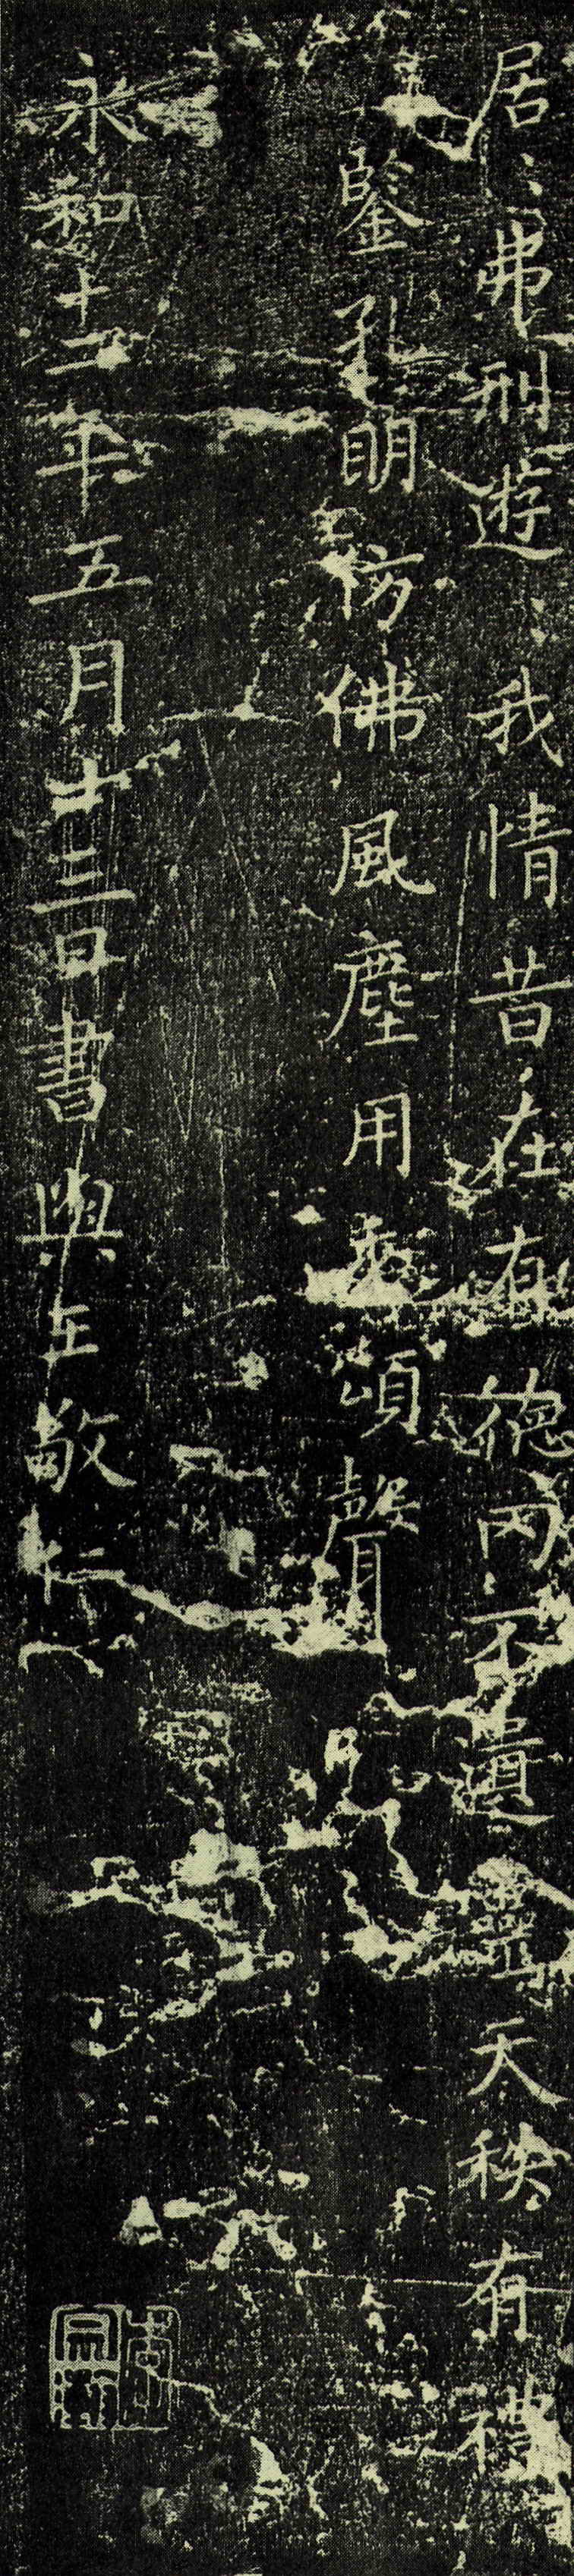 居〻弗刑遊〻我情昔在有德罔不遺靈天秩有禮
鑒孔明仿佛風塵用垂頌聲
永和十二年五月十三日書與王敬仁